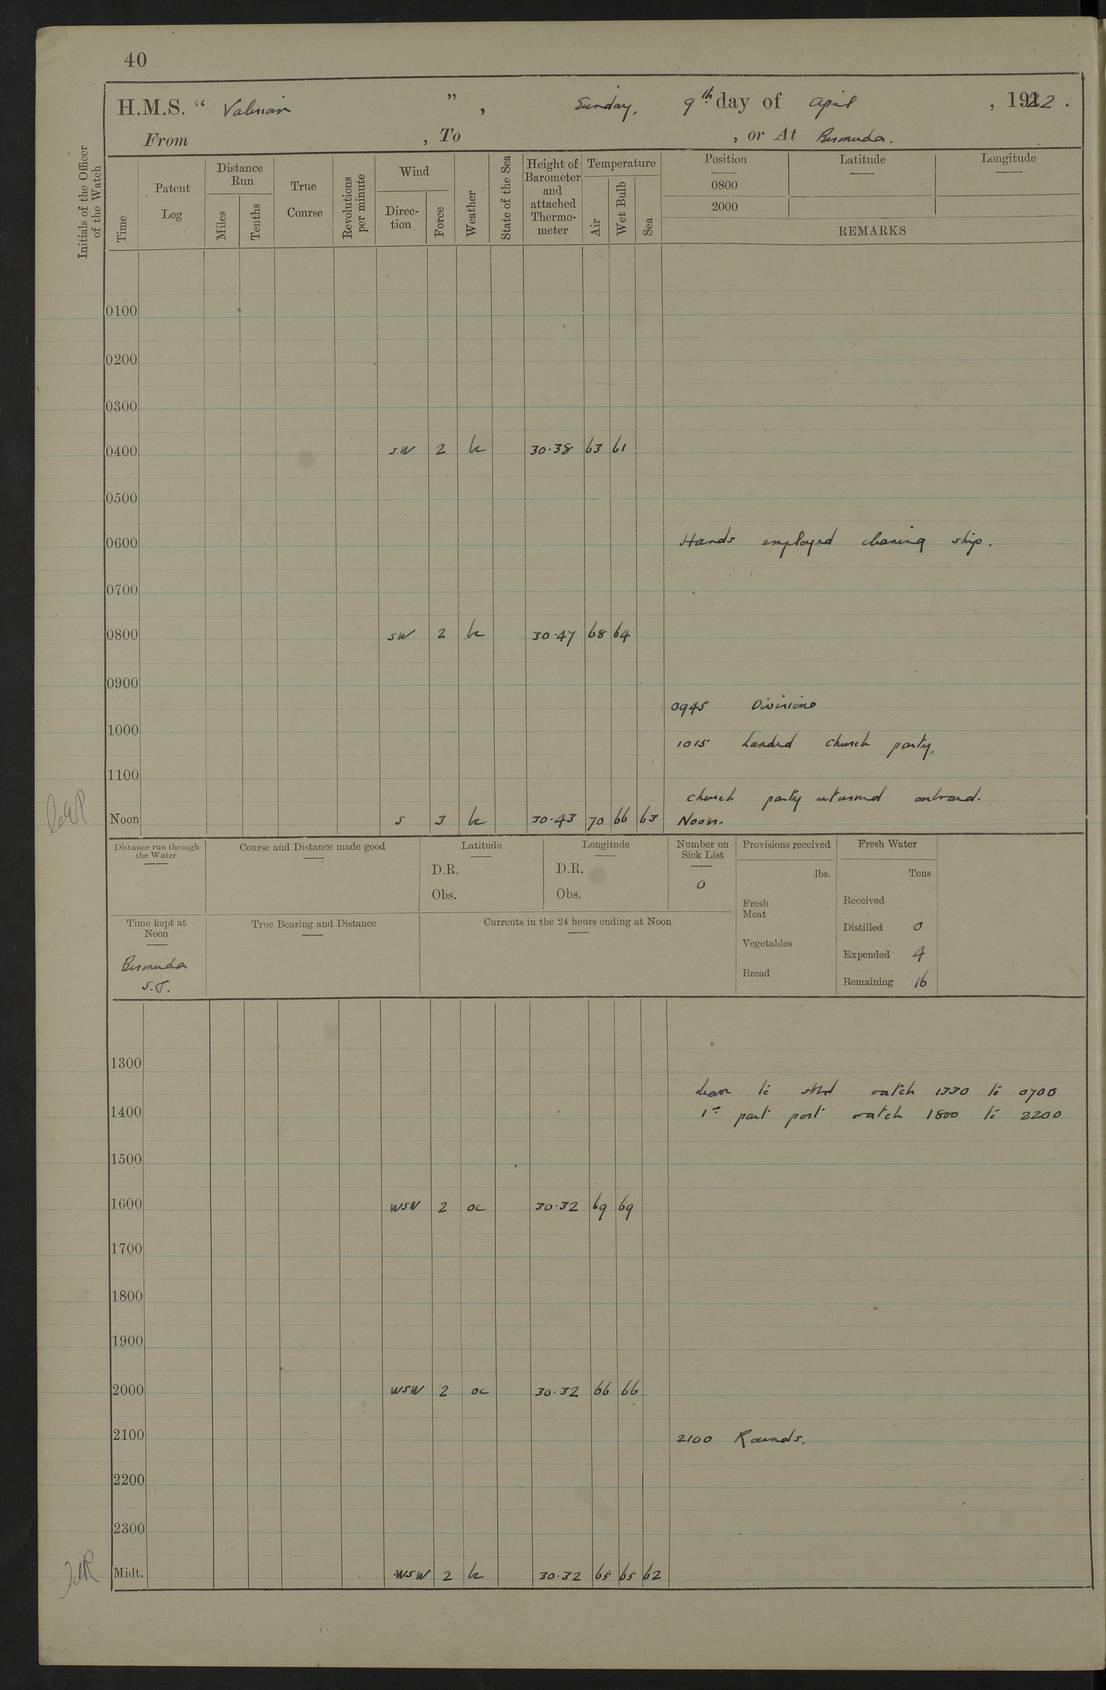 40
H.M.S. “ Valerian ” , Sunday, 9th day of April , 1922 .
From , To , or At Bermuda.
Initials of the Officer of the Watch
Time
Patent Log
Distance Run
Miles
Tenths
True Course
Revolutions per minute
Wind
Direc-tion
Force
Weather
State of the Sea
Height of Barometer and attached Thermo-meter
Temperature
Air
Wet Bulb
Sea
Position Latitude Longitude
0800
2000
REMARKS
0100
0200
0300
0400 SW 2 bc 30.38 63 61
0500
0600 Hands employed cleaning ship.
0700
0800 SW 2 bc 30.47 68 64
0900
0945 Divisions
1000
1015 Landed church party.
1100
church party returned onboard.
Noon S 3 bc 30.43 70 66 63 Noon.
Distance run through the Water
Course and Distance made good
Latitude
D.R.
Obs.
Longitude
D.R.
Obs.
Number on Sick List
0
Provisions received
lbs.
Fresh Meat
Vegetables
Bread
Fresh Water
Tons
Received
Distilled 0
Expended 4
Remaining 16
Time kept at Noon
Bermuda
S.T.
True Bearing and Distance
Currents in the 24 hours ending at Noon
1300
Leave to stbd watch 1330 to 0700
1400 1st part port watch 1800 to 2200
1500
1600 WSW 2 oc 30.32 69 69
1700
1800
1900
2000 WSW 2 oc 30.32 66 66
2100 2100 Rounds.
2200
2300
Midt. WSW 2 bc 30.32 65 65 62